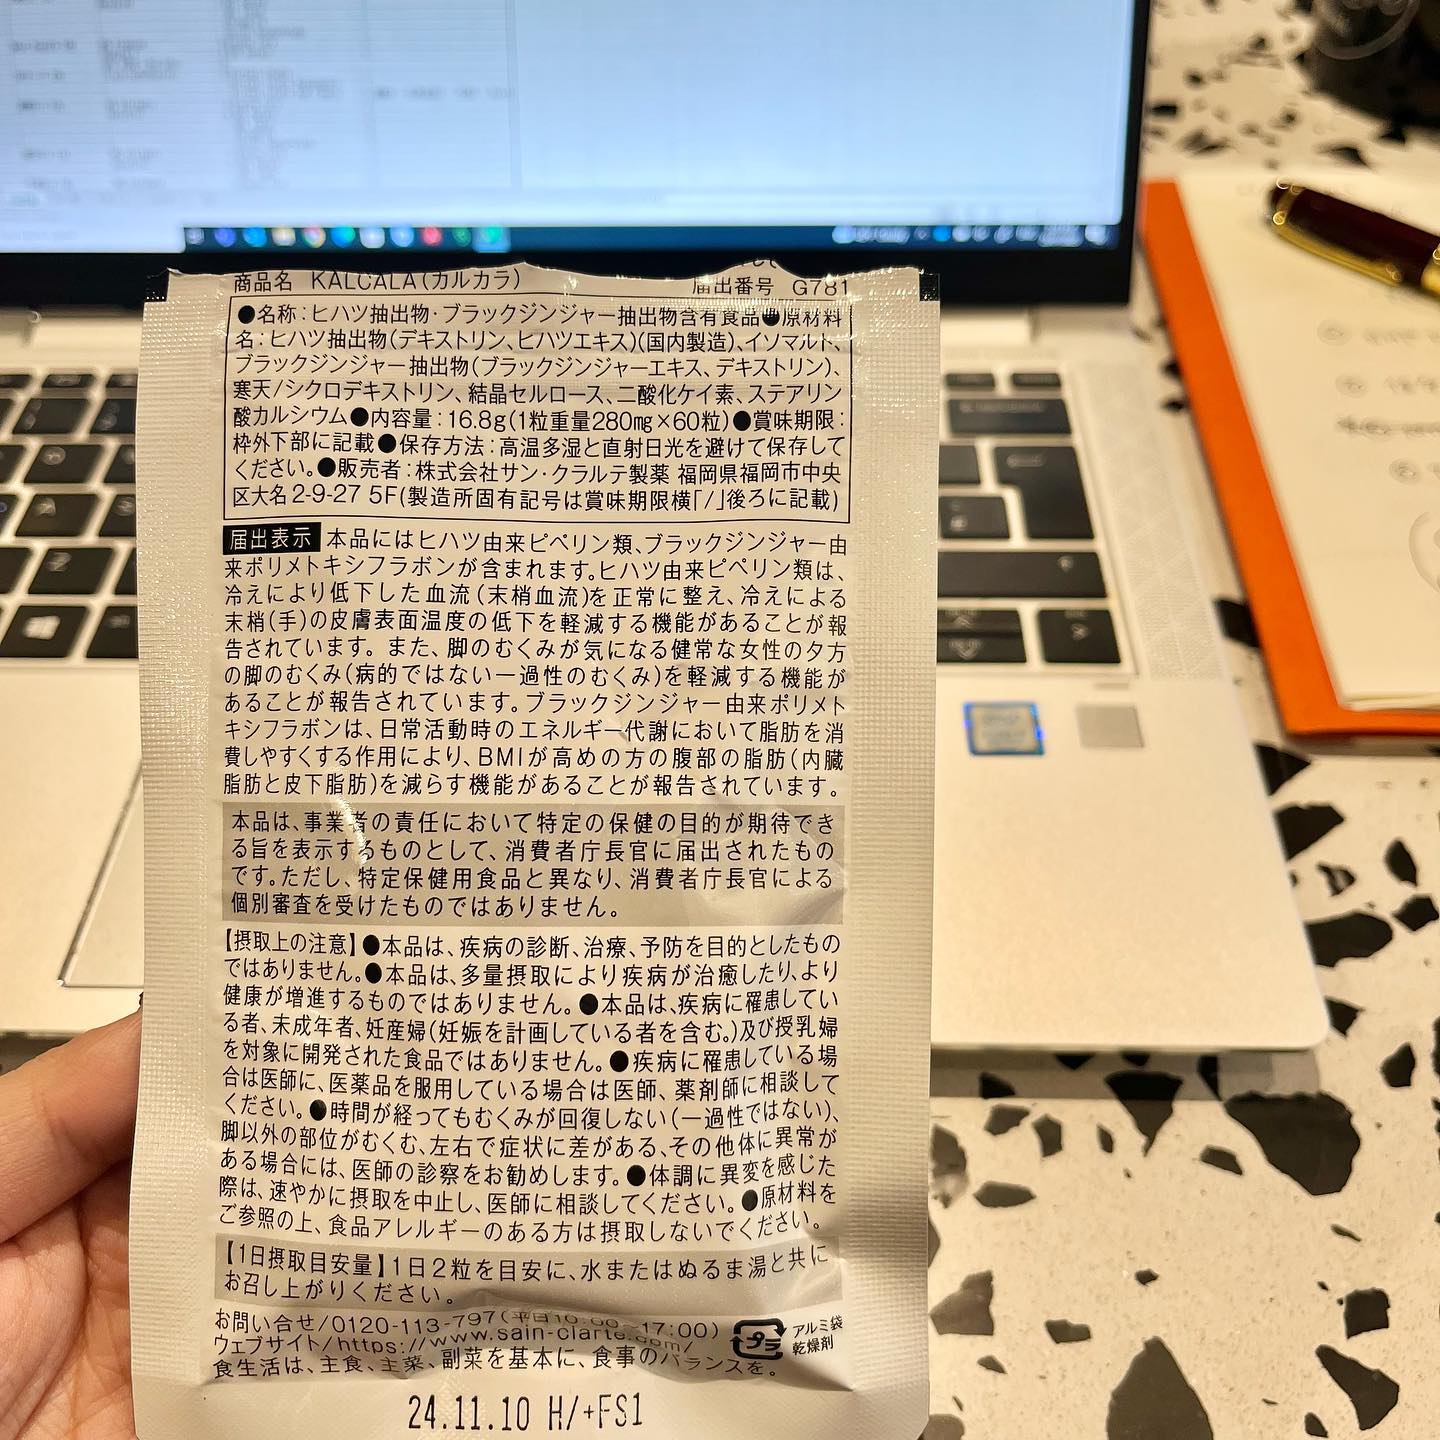 商品名 KALCALA(カルカラ) 届出番号 G781
●名称:ヒハツ抽出物・ブラックジンジャー抽出物含有食品●原材料
名:ヒハツ抽出物(デキストリン、ヒハツエキス)(国内製造)、イソマルト、
ブラックジンジャー抽出物(ブラックジンジャーエキス、デキストリン)、
寒天/シクロデキストリン、結晶セルロース、二酸化ケイ素、ステアリン
酸カルシウム●内容量:16.8g(1粒重量280mg×60粒)●賞味期限:
枠外下部に記載●保存方法:高温多湿と直射日光を避けて保存して
ください。●販売者:株式会社サン・クラルテ製薬 福岡県福岡市中央
区大名2-9-27 5F(製造所固有記号は賞味期限横「/」後ろに記載)
届出表示 本品にはヒハツ由来ピペリン類、ブラックジンジャー由
来ポリメトキシフラボンが含まれます。ヒハツ由来ピペリン類は、
冷えにより低下した血流(末梢血流)を正常に整え、冷えによる
末梢(手)の皮膚表面温度の低下を軽減する機能があることが報
告されています。また、脚のむくみが気になる健常な女性の夕方
の脚のむくみ(病的ではない一過性のむくみ)を軽減する機能が
あることが報告されています。ブラックジンジャー由来ポリメト
キシフラボンは、日常活動時のエネルギー代謝において脂肪を消
費しやすくする作用により、BMIが高めの方の腹部の脂肪(内臓
脂肪と皮下脂肪)を減らす機能があることが報告されています。
本品は、事業者の責任において特定の保健の目的が期待でき
る旨を表示するものとして、消費者庁長官に届出されたもの
です。ただし、特定保健用食品と異なり、消費者庁長官による
個別審査を受けたものではありません。
【摂取上の注意】●本品は、疾病の診断、治療、予防を目的としたもの
ではありません。●本品は、多量摂取により疾病が治癒したり、より
健康が増進するものではありません。●本品は、疾病に罹患してい
る者、未成年者、妊産婦(妊娠を計画している者を含む。)及び授乳婦
を対象に開発された食品ではありません。●疾病に罹患している場
合は医師に、医薬品を服用している場合は医師、薬剤師に相談して
ください。●時間が経ってもむくみが回復しない(一過性ではない)、
脚以外の部位がむくむ、左右で症状に差がある、その他体に異常が
ある場合には、医師の診察をお勧めします。●体調に異変を感じた
際は、速やかに摂取を中止し、医師に相談してください。●原材料を
ご参照の上、食品アレルギーのある方は摂取しないでください。
【1日摂取目安量】1日2粒を目安に、水またはぬるま湯と共に
お召し上がりください。
お問い合せ/0120-113-797(平日10:00~17:00)
ウェブサイト/https://www.sain-clarte.com/
食生活は、主食、主菜、副菜を基本に、食事のバランスを。
プラ アルミ袋
乾燥剤
24.11.10 H/+FS1